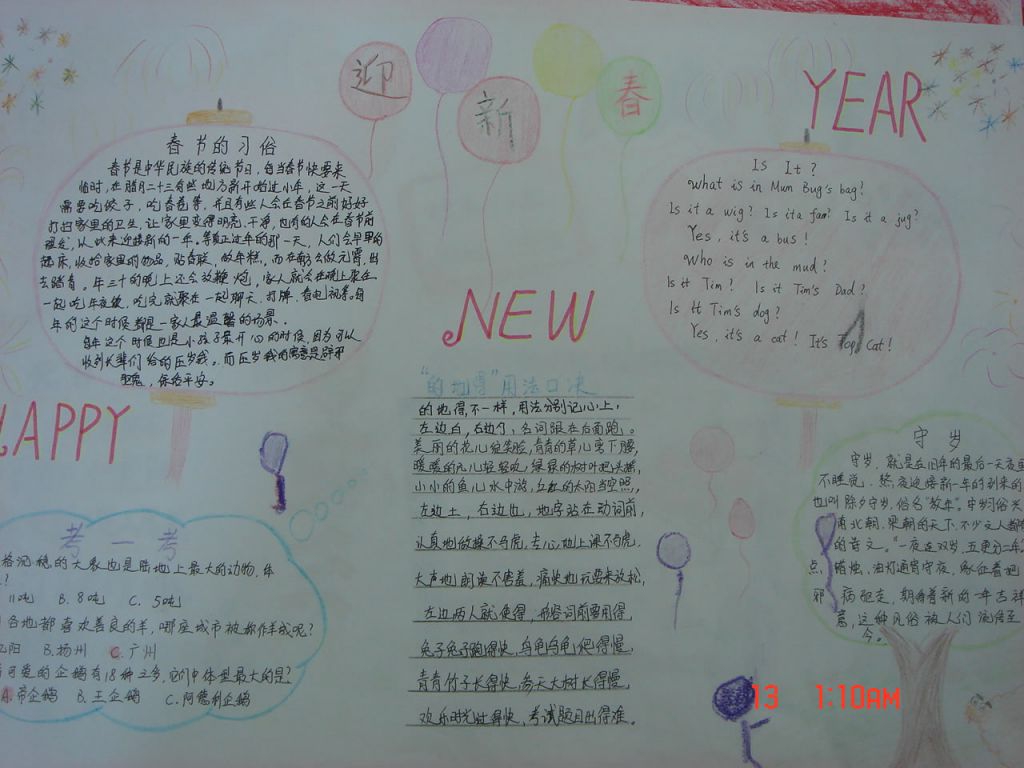 迎
新
春
YEAR
春节的习俗
春节是中华民族的传统节日,每当春节快要来
临时,在腊月二十三有些地方新开始过小年,这一天
需要吃饺子,吃香卷等,并且有些人会在春节之前好好
打扫家里的卫生,让家里变得明亮,干净,也有的人会在春节前
理发,以此来迎接新的一年。等真正过年的那一天,人们会早早的
起床,收拾家里的物品,贴春联,做年糕,而在
去踏春。年三十的晚上还会放鞭炮,家人就会在晚上聚在
一起吃年夜饭,吃完就聚在一起聊天,打牌,看电视等。每
年的这个时候都是一家人最温馨的场景.
每年这个时候也是小孩子最开心的时候,因为可以
收到长辈们给的压岁钱。而压岁钱的寓意是辟邪
驱鬼,保佑平安。
Is It?
What is in Mum Bug's bag?
Is it a wig? Is it a fan? Is it a jug?
Yes, it's a bus!
Who is in the mud?
Is it Tim? Is it Tim's Dad?
Is it Tim's dog?
Yes, it's a cat! It's Top Cat!
NEW
HAPPY
"的地得"用法口决
的地得,不一样,用法分别记心上,
左边白,右边勺,名词跟在后面跑。
美丽的花儿绽笑脸,青青的草儿弯下腰,
暖暖的风儿轻轻吹,绿绿的树叶把头摇,
小小的鱼儿水中游,红红的太阳当空照,
左边土,右边也,地字站在动词前,
认真地做操不马虎,专心地上课不大意,
大声地朗读不害羞,痛快地玩耍来放松,
左边两人就使得,形容词前要用得,
兔子兔子跑得快,乌龟乌龟爬得慢,
青青竹子长得快,参天大树长得慢,
欢乐时光过得快,考试题目出得难。
考一考
格沉稳的大象也是陆地上最大的动物,年
?
11吨 B.8吨 C.5吨
各地都喜欢善良的羊,哪座城市被称作羊城呢?
阳 B.扬州 C.广州
可爱的企鹅有18种之多,它们中体型最大的是?
A.帝企鹅 B.王企鹅 C.阿德利企鹅
守岁
守岁,就是在旧年的最后一天夜里
不睡觉,熬夜迎接新一年的到来的
也叫除夕守岁,俗名"熬年"。守岁习俗兴
南北朝,梁朝的天下,不少文人都有
的诗文。"一夜连双岁,五更分二年"
点蜡烛,油灯通宵守夜,象征着把
邪病驱走,期待着新的一年吉祥
意,这种风俗被人们流传至
今。
13 1:10AM